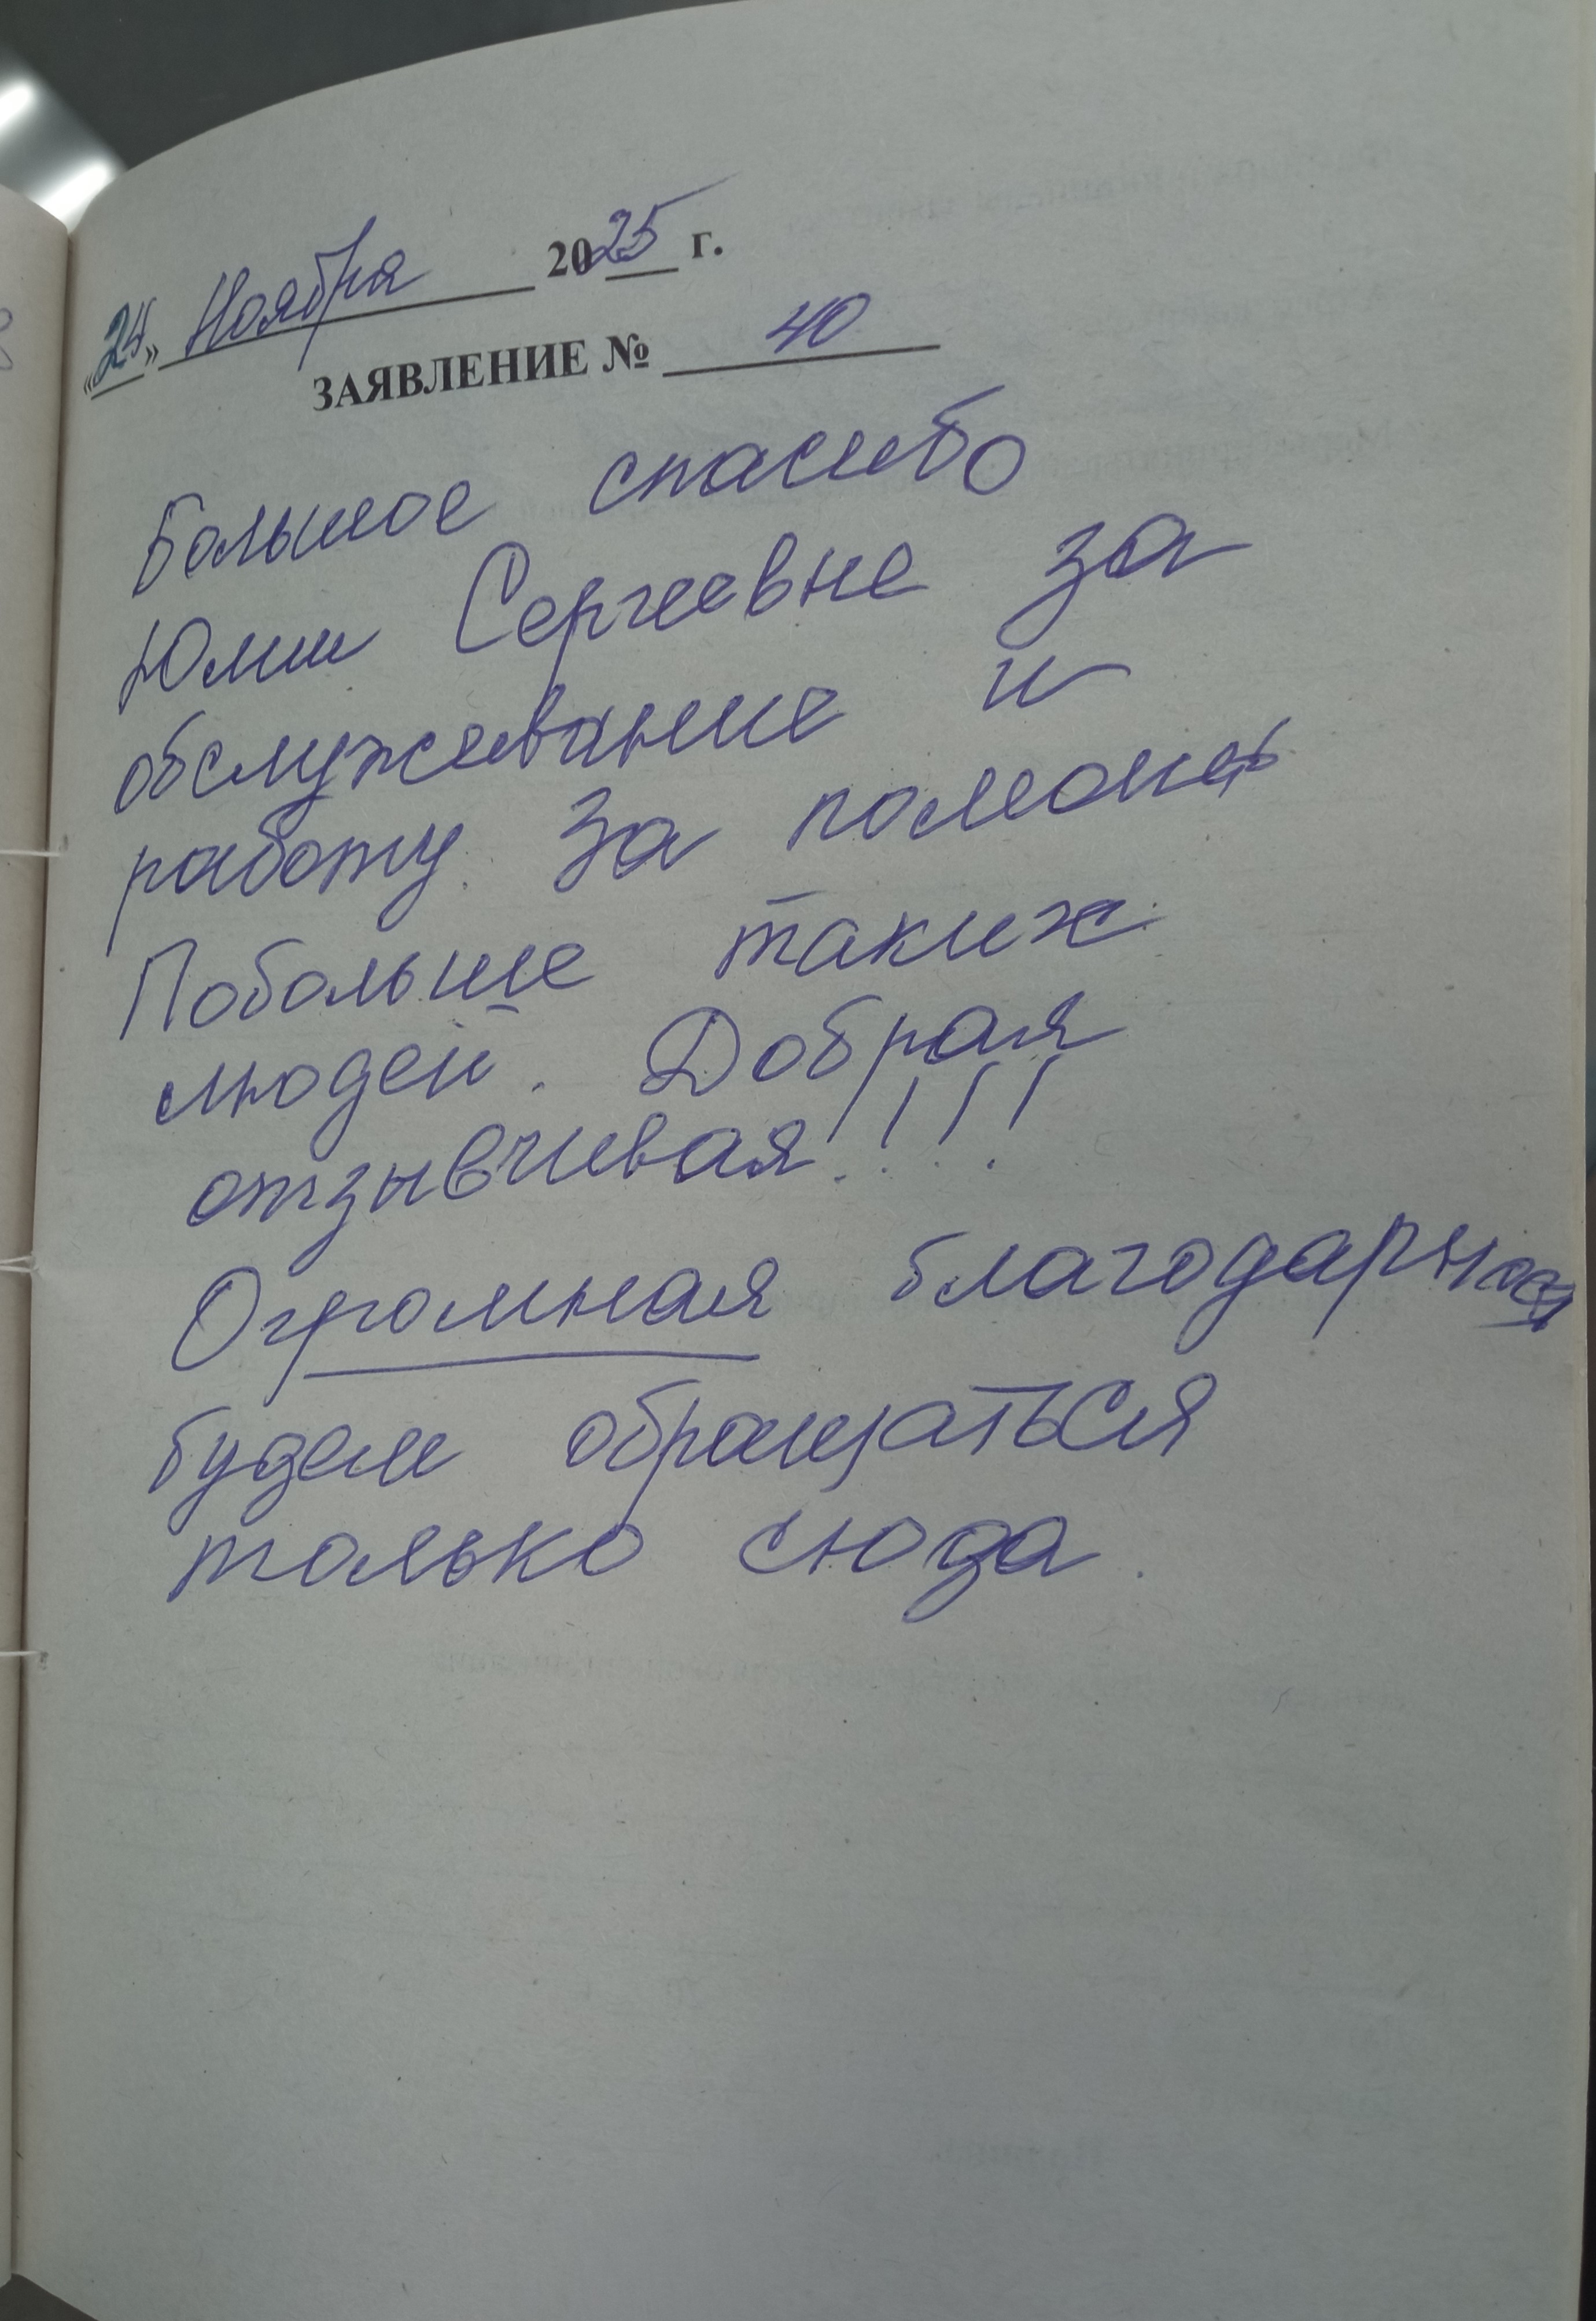 «24» Ноября 2025 г.
ЗАЯВЛЕНИЕ № 40
Большое спасибо
Юлии Сергеевне за
обслуживание и
работу. За помощь
Побольше таких
людей. Добрая
отзывчивая!!!!
Огромная благодарность
будем обращаться
только сюда.